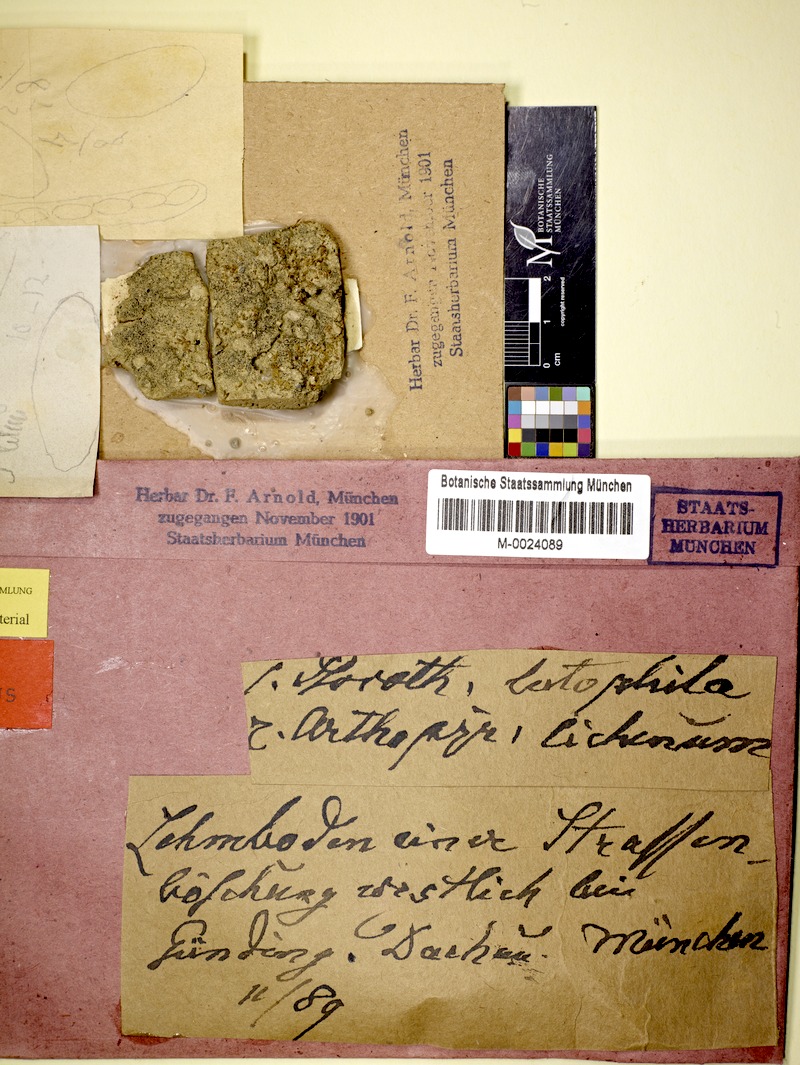 Herbar Dr. F. Arnold, München
zugegangen November 1901
Staatsherbarium München
BOTANISCHE
STAATSSAMMLUNG
MÜNCHEN
copyright reserved
0 1 2
cm
Herbar Dr. F. Arnold, München
zugegangen November 1901
Staatsherbarium München
Botanische Staatssammlung München
M-0024089
STAATS-
HERBARIUM
MÜNCHEN
MLUNG
terial
S
1. Thrombium lutophila
2. Arthopyr. lichenum
Lehmboden einer Strassen-
böschung westlich bei
Günding. Dachau. München
11/89